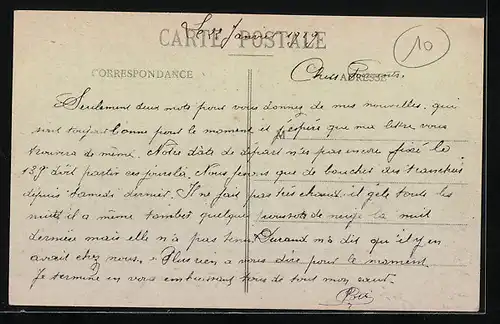 Le 18 Janvier 1919
CARTE POSTALE
10
CORRESPONDANCE
ADRESSE
Chers Parents,
Seulement deux mots pour vous donner de mes nouvelles, qui
sont toujours bonne pour le moment et j'éspère que ma lettre vous
trouvera de même. Notre date de départ n'es pas encore fixé le
13e doit partir ces jours la. Nous fesons que de boucher des tranchées
depuis samedi dernier. Il ne fait pas très chaud, il gèle toute les
nuits il a même tomber quelque de neige la nuit
dernière mais elle n'a pas tenu. Durand m'a dit qu'il y en
avait chez nous. Plus rien a vous dire pour le moment
Je termine en vous embrassant tous de tout mon cœur.